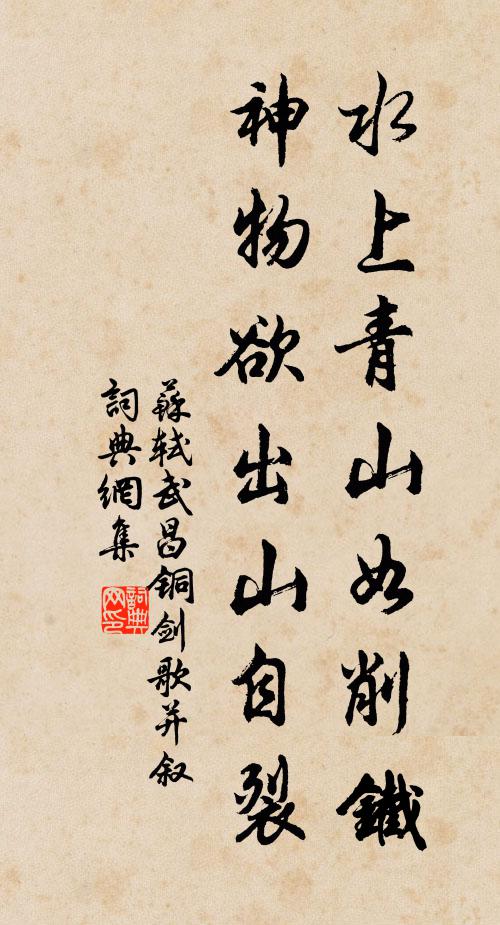 水上青山如削鐵
神物欲出山自裂
蘇軾武昌銅劍歌并叙
詞典網集
詞典
网印